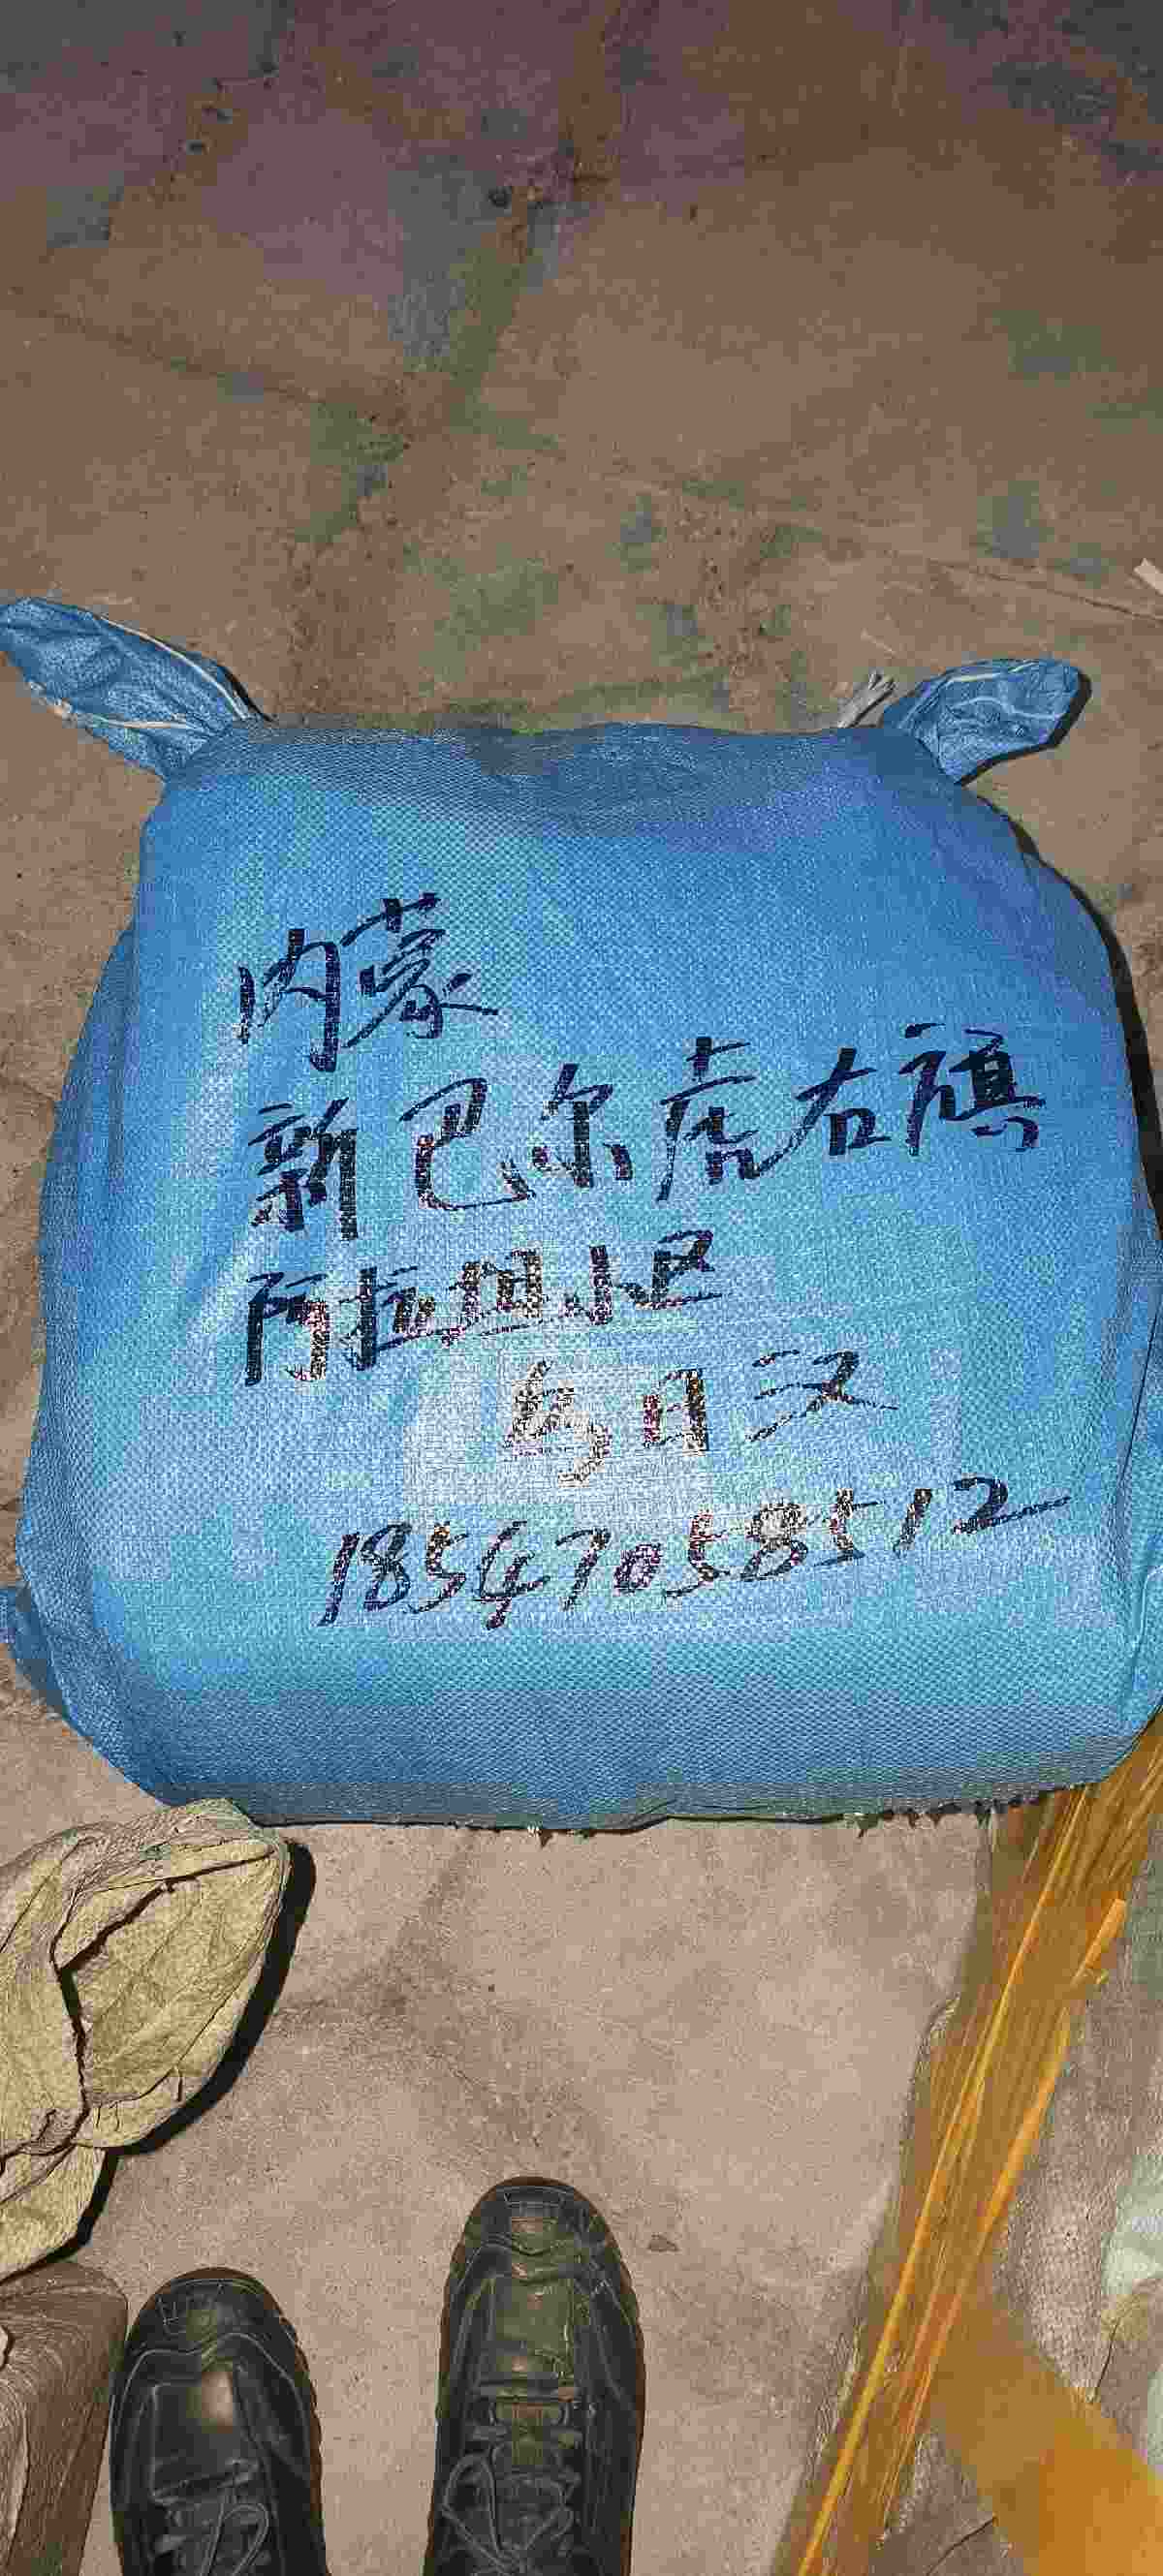 内蒙
新巴尔虎右旗
阿拉坦小区
乌日汉
18547058512